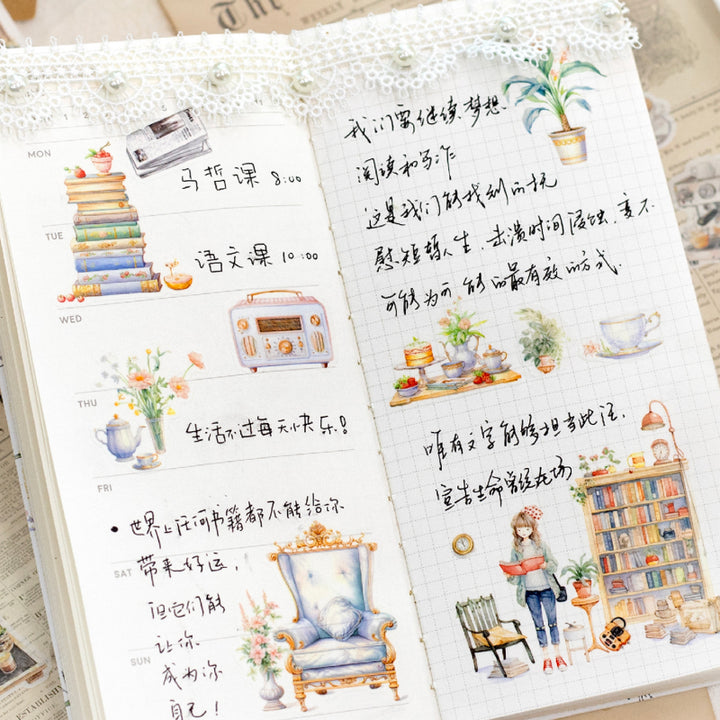 The
WEEKLY
MON
马哲课 8:00
TUE
语文课 10:00
WED
THU
生活不过每天小快乐!
FRI
• 世界上任何书籍都不能给你
SAT
带来好运,
但它们能
让你
SUN
成为你
自己!
我们要继续梦想.
阅读和写作
这是我们能找到的抚
慰短暂人生,击溃时间侵蚀,变不
可能为可能的最有效的方式.
唯有文字能够担当此任,
宣告生命曾经在场